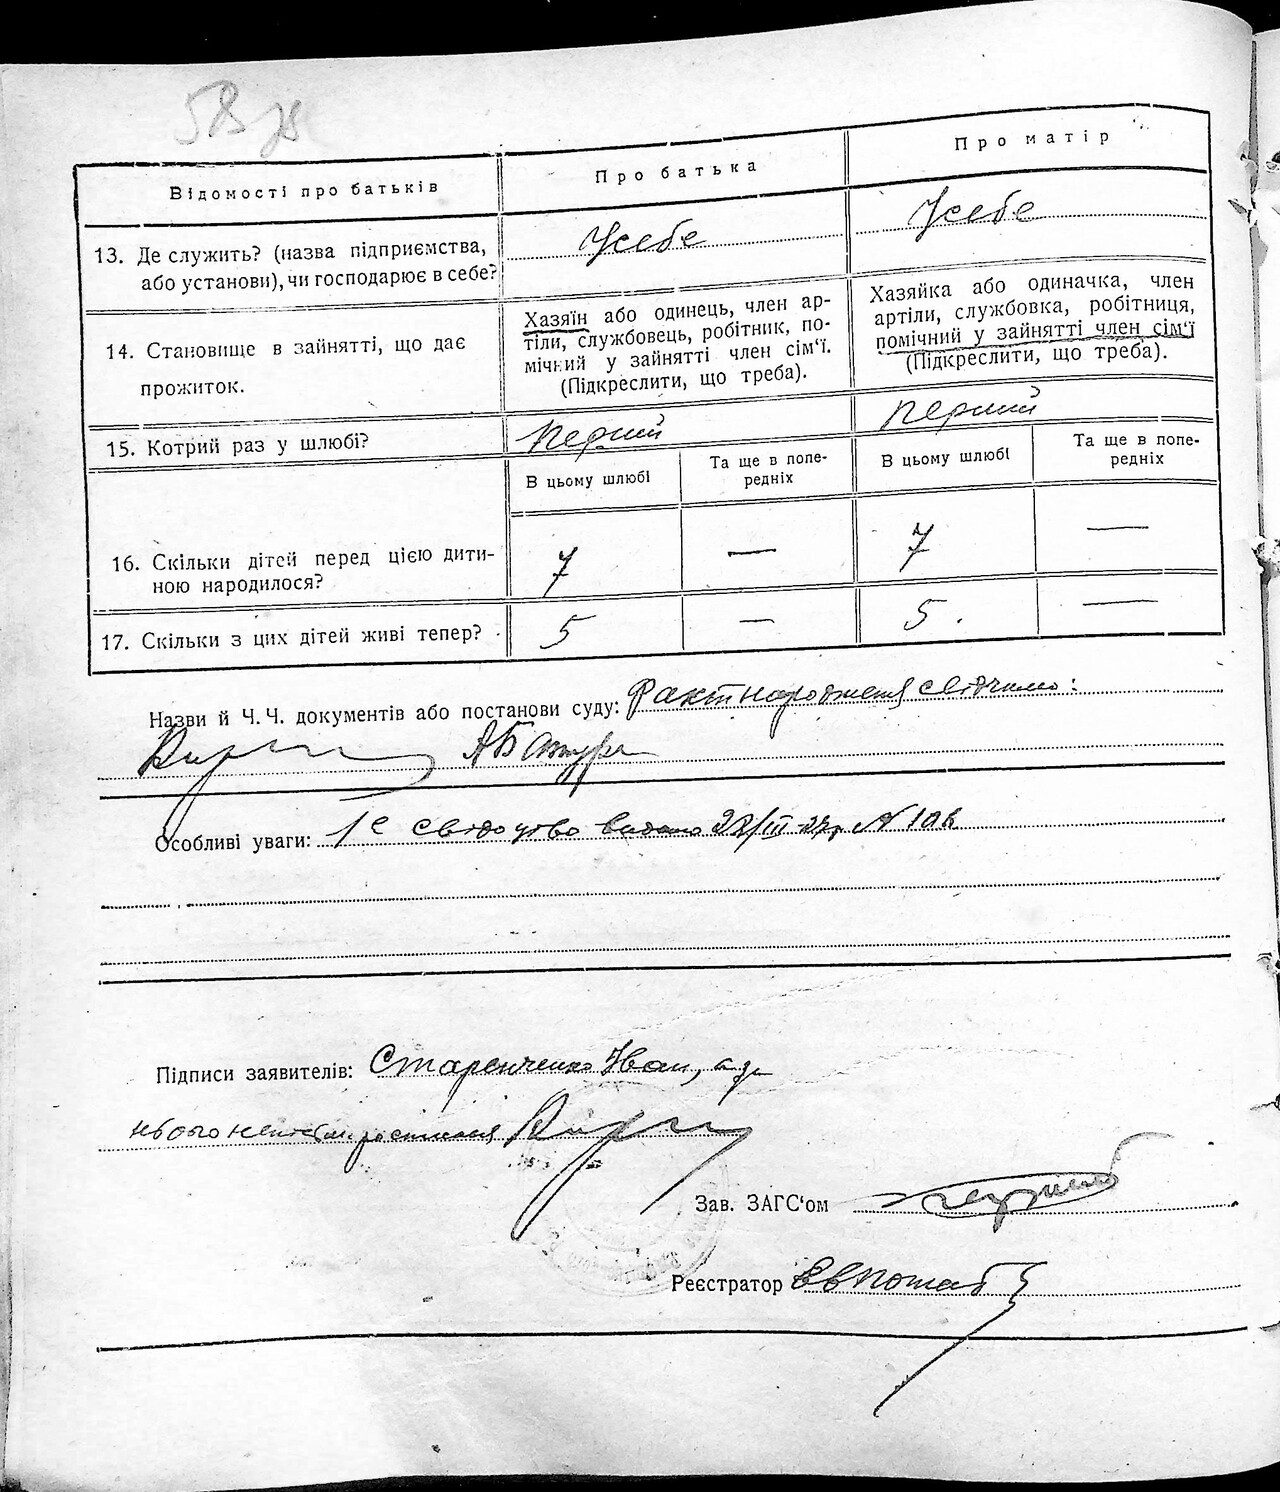 Відомості про батьків
Про батька
Про матір
13. Де служить? (назва підприємства,
або установи), чи господарює в себе?
Усебе
Усебе
14. Становище в зайнятті, що дає
прожиток.
Хазяїн або одинець, член ар-
тіли, службовець, робітник, по-
мічний у зайнятті член сім'ї.
(Підкреслити, що треба).
Хазяйка або одиначка, член
артіли, службовка, робітниця,
помічний у зайнятті член сім'ї
(Підкреслити, що треба).
15. Котрий раз у шлюбі?
Перший
Перший
В цьому шлюбі
Та ще в попе-
редніх
В цьому шлюбі
Та ще в попе-
редніх
16. Скільки дітей перед цією дити-
ною народилося?
7
—
7
—
17. Скільки з цих дітей живі тепер?
5
—
5.
—
Назви й Ч.Ч. документів або постанови суду: Факт народження свідчимо:
Особливі уваги: 1е свідоцтво видано
Підписи заявителів: Старенченко Іван, а за
нього неписьм. росписався
Зав. ЗАГС'ом
Реєстратор